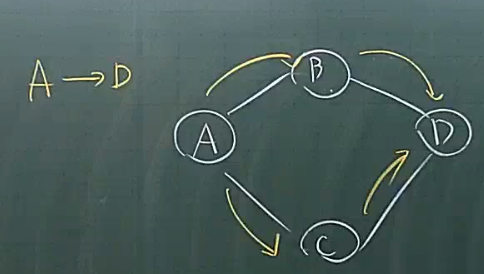 A → D
B
A
D
C